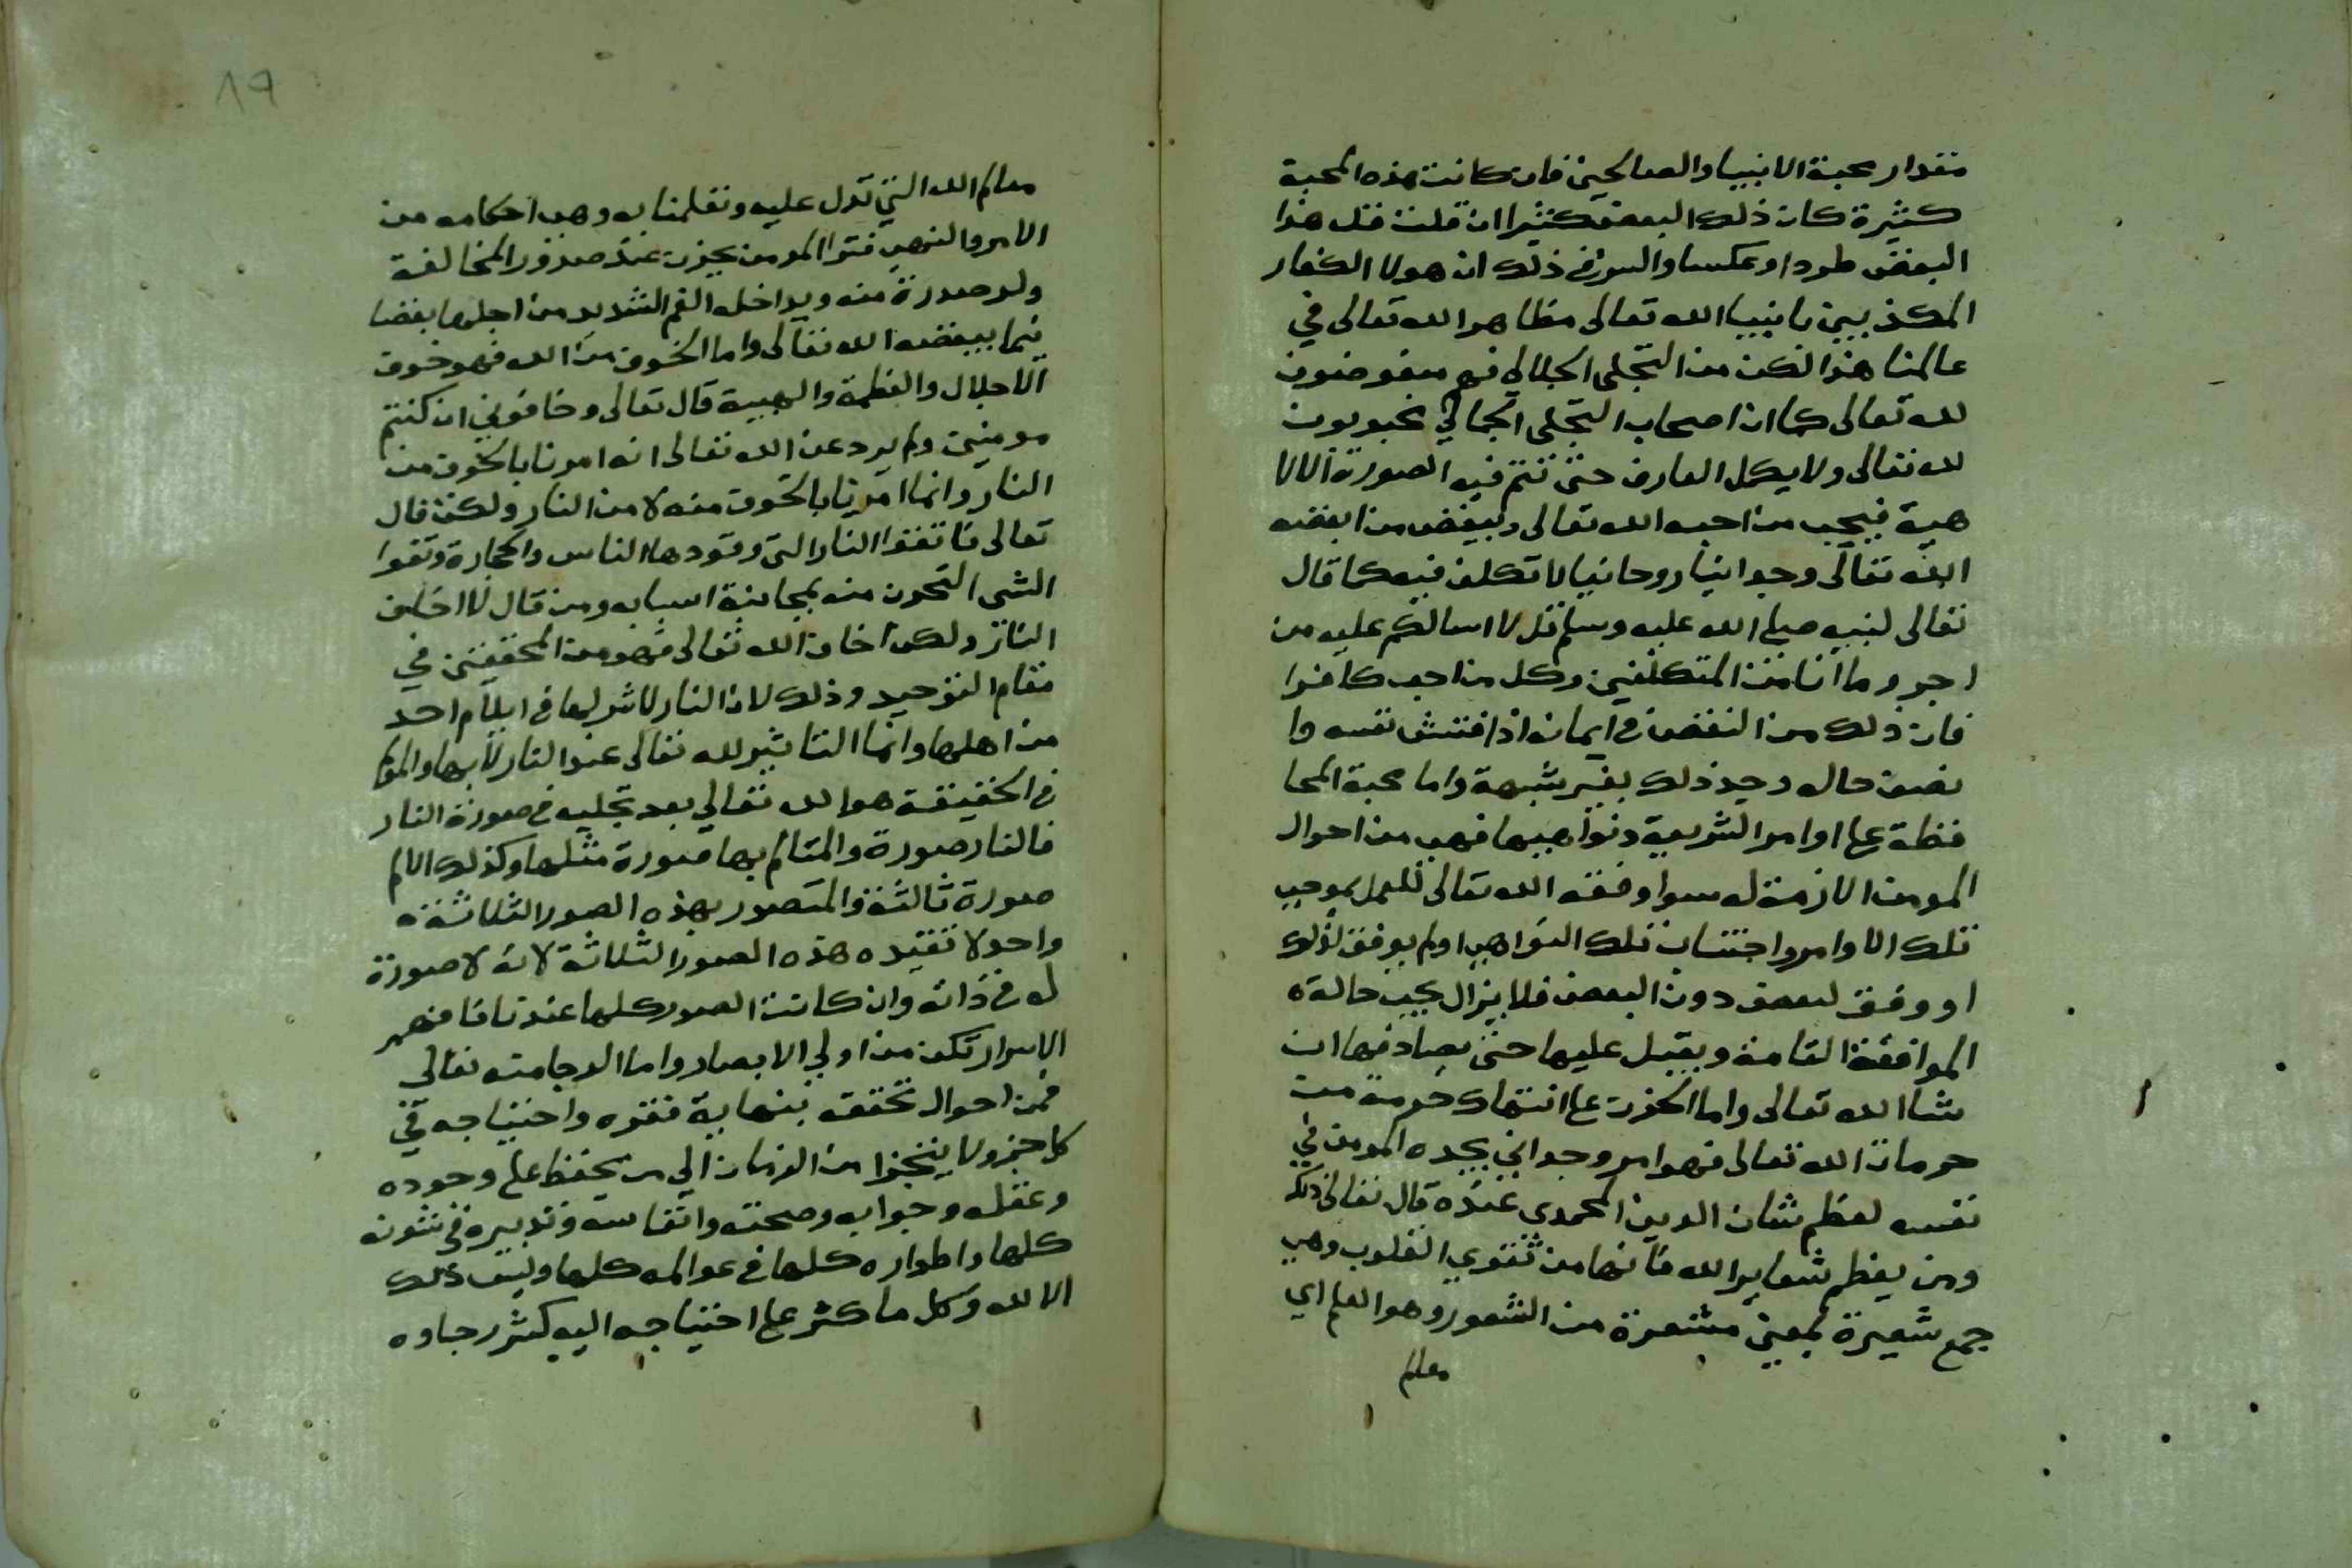 مقدار محبة الانبيا والصالحين فان كانت هذه المحبة
كثيرة كان ذلك البعض كثيرا ان قلت قل هذا
البغض طردا وعكسا والسر في ذلك ان هولا الكفار
المكذبين بانبيا الله تعالى مظاهر الله تعالى في
عالمنا هذا لكن من التجلى الجلالي فهم مبغوضون
لله تعالى كما ان اصحاب التجلى الجمالي محبوبون
لله تعالى ولا يكمل العارف حتى تتم فيه الصورة الالا
هية فيحب من احبه الله تعالى ويبغض من ابغضه
الله تعالى وجدانيا روحانيا لا تكلف فيه كما قال
تعالى لنبيه صلى الله عليه وسلم قل لا اسالكم عليه من
اجر وما انا من المتكلفين وكل من احب كافرا
فان ذلك من النقص في ايمانه اذا فتش نفسه وا
نصف حاله وجد ذلك بغير شبهة واما محبة المحا
فظة على اوامر الشريعة ونواهيها فهي من احوال
المومن الازمة له سوا وفقه الله تعالى للعمل بموجب
تلك الاوامر واجتناب تلك النواهي اولم يوفق لذلك
او وفق لبعض دون البعض فلا يزال يحب حالة
الموافقة التامة ويقبل عليها حتى يصادفها ان
شا الله تعالى واما الحزن على انتهاك حرمة من
حرمات الله تعالى فهو امر وجداني يجده المومن في
نفسه لعظم شان الدين المحمدى عنده قال تعالى ذلك
ومن يعظم شعاير الله فانها من تقوي القلوب وهي
جمع شعيرة بمعنى مشعرة من الشعور وهو العلم اي
معالم
١٩
معالم الله التي تدل عليه وتعلمنا به وهي احكامه من
الامر والنهي فترا المومن يحزن عند صدور المخالفة
ولو صدرة منه ويداخله الغم الشديد من اجلها بغضا
فيما يبغضه الله تعالى واما الخوف من الله فهو خوف
الاجلال والعظمة والهيبة قال تعالى وخافوني ان كنتم
مومنين ولم يرد عن الله تعالى انه امرنا بالخوف من
النار وانما امرنا بالخوف منه لا من النار ولكن قال
تعالى فاتقوا النار التي وقودها الناس والحجارة وتقوا
الشي التحرز منه بمجانبة اسبابه ومن قال لا اخاف
النار ولكن اخاف الله تعالى فهو من المحققين في
مقام التوحيد وذلك لان النار لا تاثير لها في ايلام احد
من اهلها وانما التاثير لله تعالى عند النار لا بها والمولم
في الحقيقة هو الله تعالي بعد تجليه في صورة النار
فالنار صورة والمتالم بها صورة مثلها وكذلك الالم
صورة ثالثة والمتصور بهذه الصور الثلاثة
واحد لا تقيده هذه الصور الثلاثة لانه لا صورة
له في ذاته وان كانت الصور كلها عندنا فافهم
الاسرار تكن من اولي الابصار واما الرجا منه تعالى
فمن احوال تحققه بنهاية فقره واحتياجه في
كل جزو لا يتجزا من الزمان الي من يحفظ على وجوده
وعقله وجوابه وصحته وانفاسه وتدبيره في شئونه
كلها واطواره كلها في عوالمه كلها وليس ذلك
الا لله وكل ما كثر على احتياجه اليه كثر رجاوه